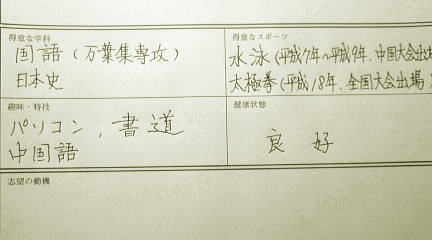 得意な学科
国語(万葉集専攻)
日本史
得意なスポーツ
水泳(平成7年〜平成9年、中国大会出場
太極拳(平成18年、全国大会出場
趣味・特技
パソコン，書道
中国語
健康状態
良好
志望の動機